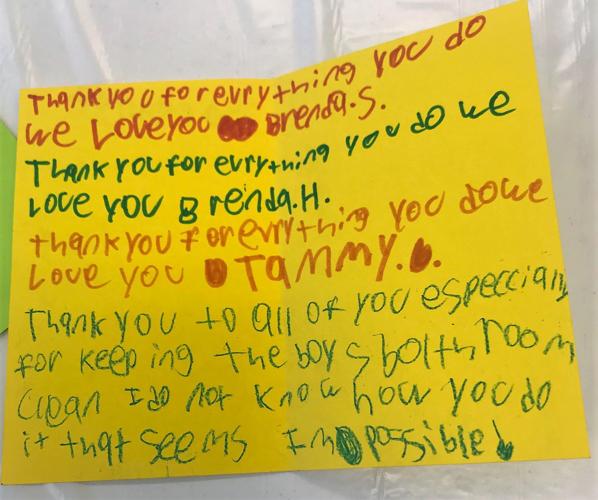 Thank you for evrything you do
we Love you Brenda.S.
Thank you for evrything you do we
Love you Brenda.H.
thank you for evrything you do we
Love you Tammy.
Thank you to all of you especcially
for keeping the boys bolthroom
clean I do not know how you do
it that seems Impossible!